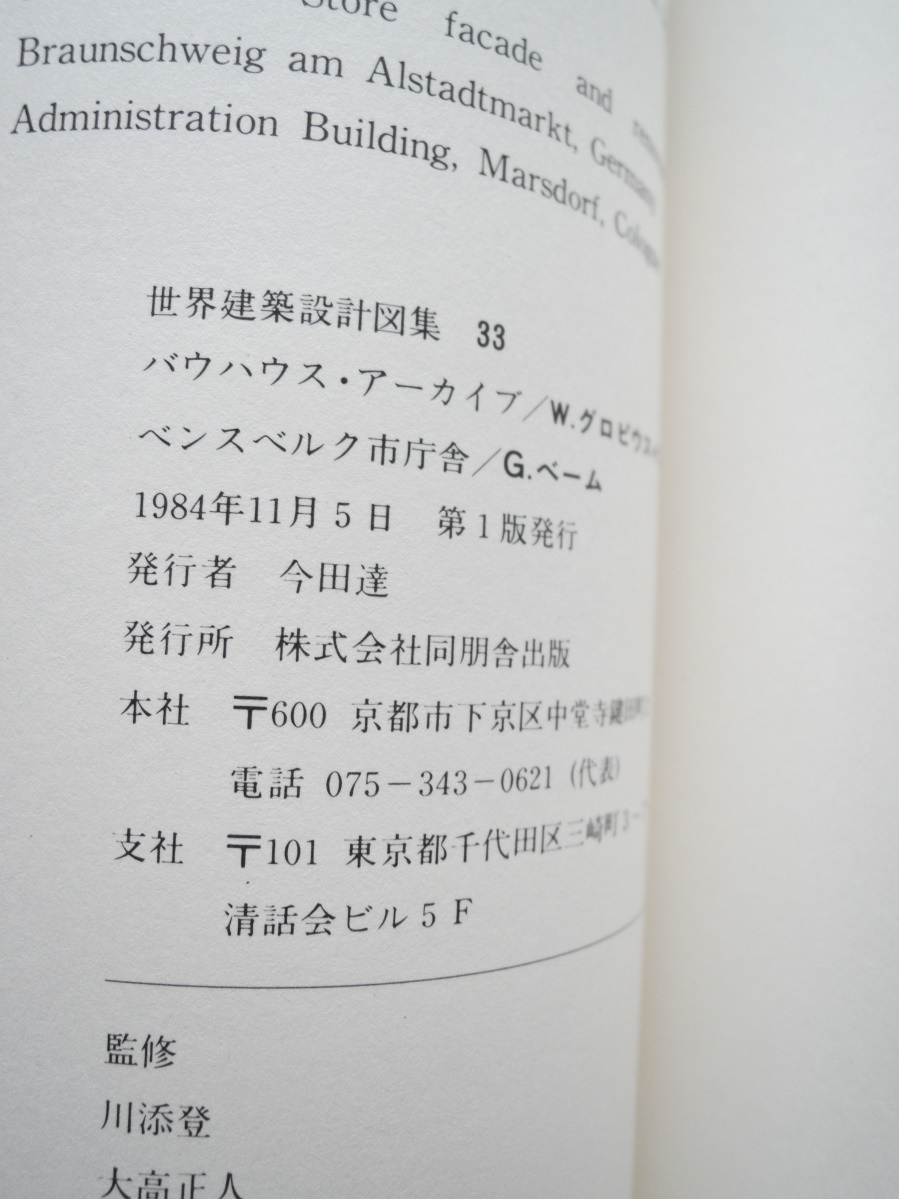 Store facade and
Braunschweig am Alstadtmarkt, Germany
Administration Building, Marsdorf,
世界建築設計図集 33
バウハウス・アーカイブ/W.グロピウス
ベンスベルク市庁舎/G.ベーム
1984年11月5日 第1版発行
発行者 今田達
発行所 株式会社同朋舎出版
本社 〒600 京都市下京区中堂寺鍵田町
電話 075-343-0621(代表)
支社 〒101 東京都千代田区三崎町3-
清話会ビル5F
監修
川添登
大高正人